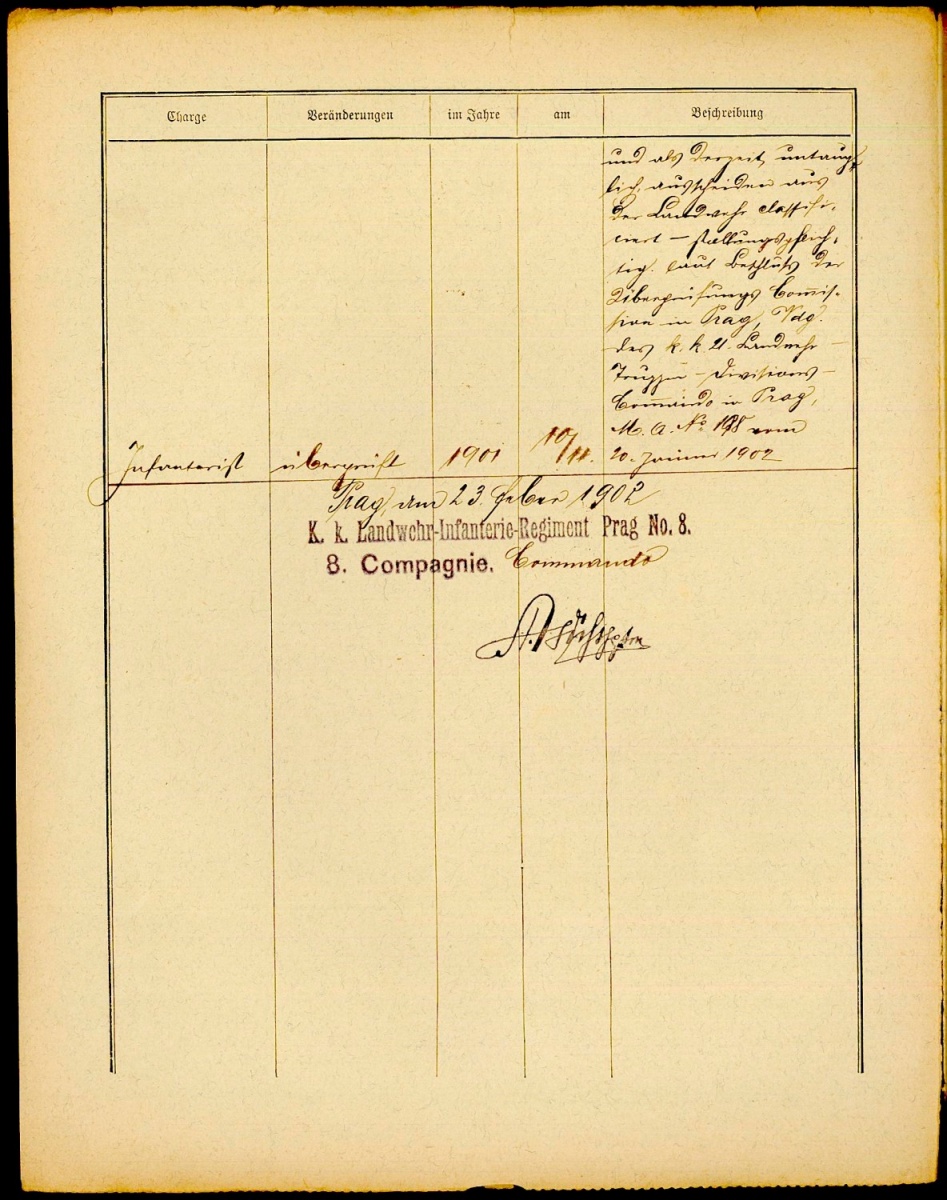 Charge Veränderungen im Jahre am Beschreibung
und als derzeit untaug-
lich, ausscheiden aus
der Landwehr classifi-
ciert – stellungspflich-
tig. laut Beschluß der
Überprüfungs Commis-
sion in Prag, Vdg.
des k. k. 21. Landwehr –
Truppen – Divisions –
Commando in Prag,
M. A. No 198 vom
Infanterist überprüft 1901 10/11. 20. Jänner 1902
Prag, am 23. Feber 1902
K. k. Landwehr-Infanterie-Regiment Prag No. 8.
8. Compagnie. Commando